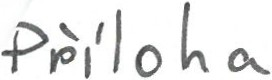 Příloha